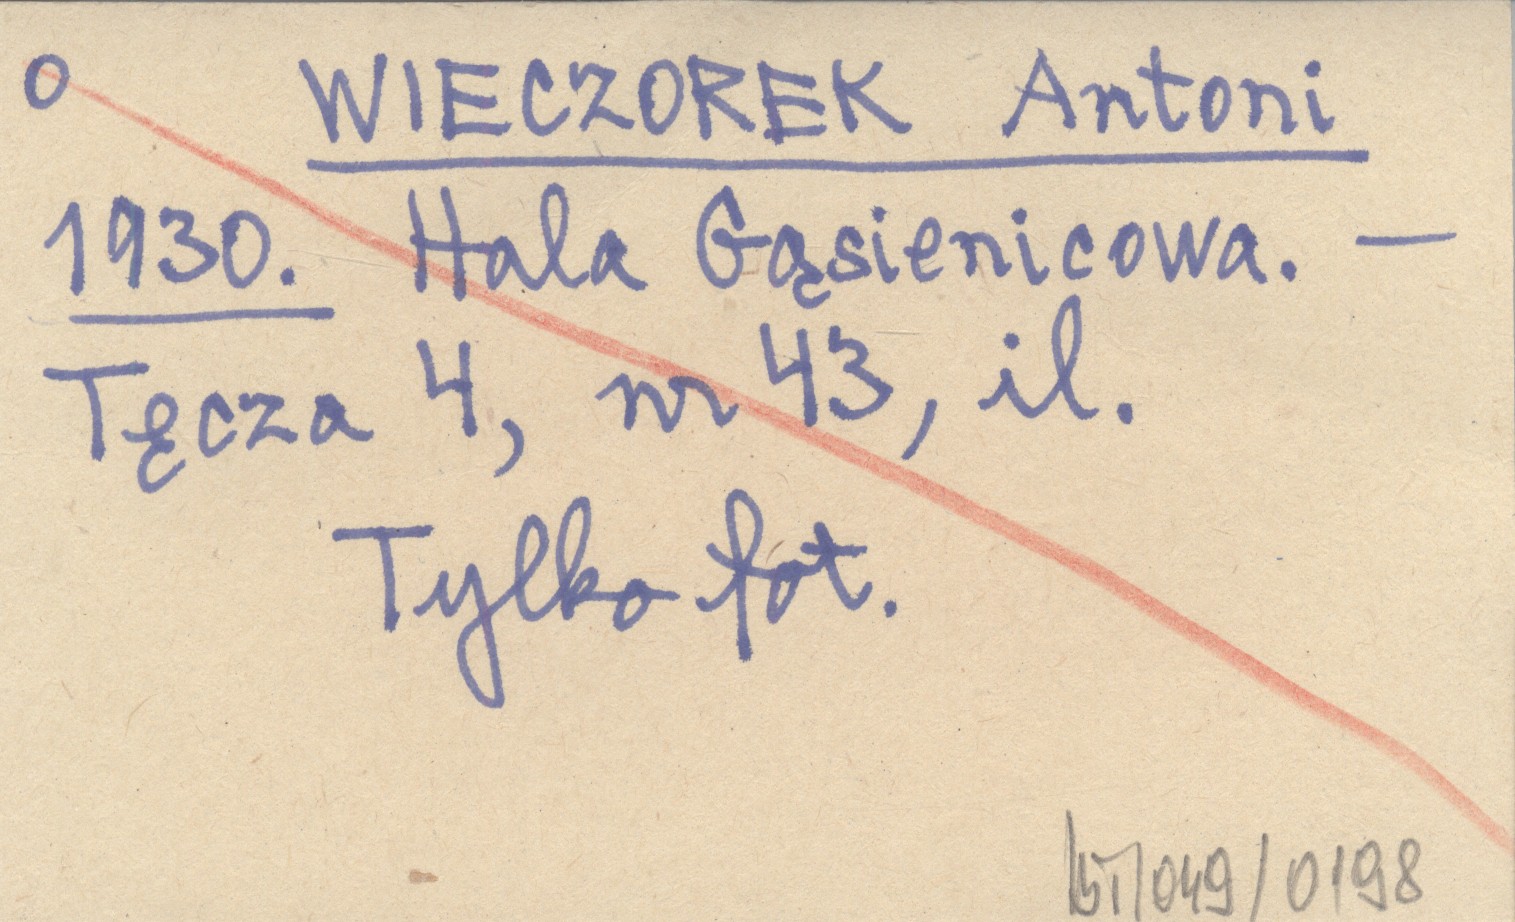 o WIECZOREK Antoni
1930. Hala Gąsienicowa. —
Tęcza 4, nr 43, il.
Tylko fot.
/049/0198